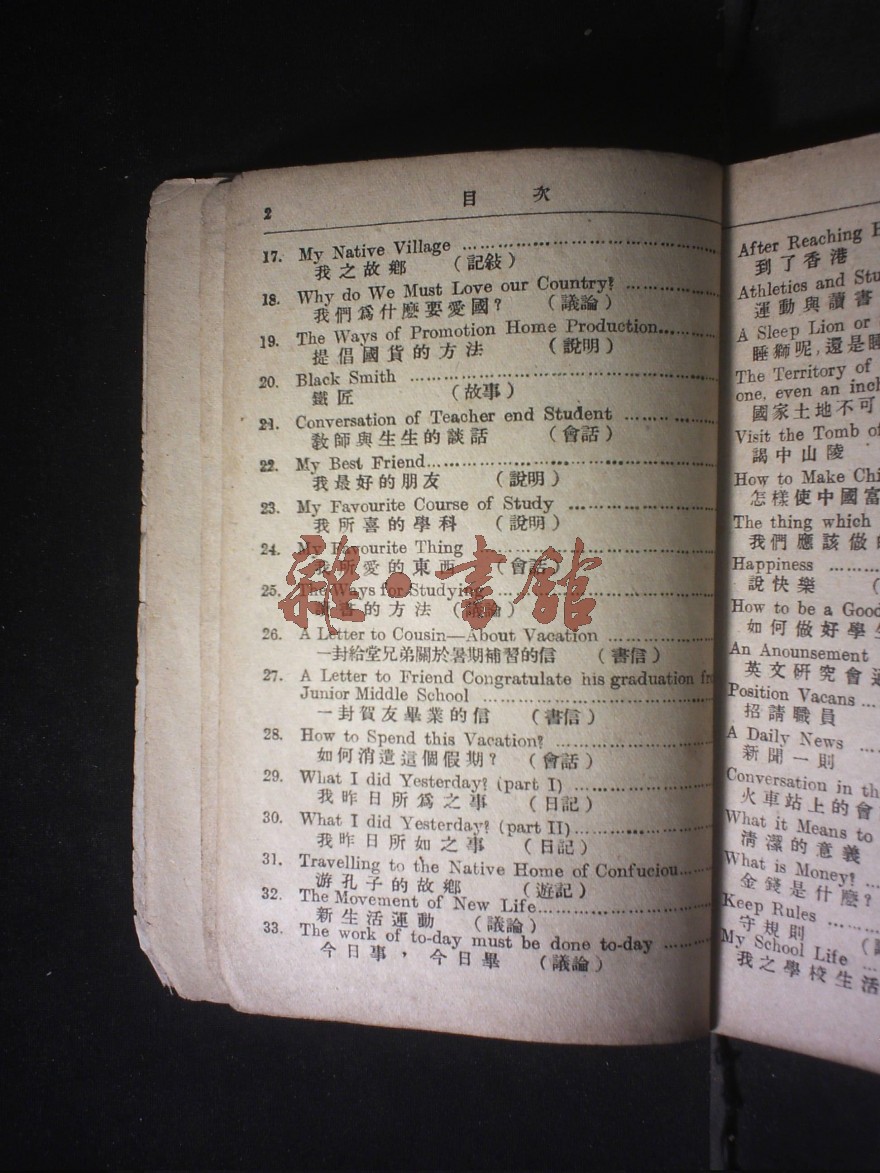 2
目 次
17. My Native Village
我之故鄉 (記敍)
18. Why do We Must Love our Country?
我們爲什麽要愛國? (議論)
19. The Ways of Promotion Home Production
提倡國貨的方法 (說明)
20. Black Smith
鐵匠 (故事)
21. Conversation of Teacher end Student
敎師與生生的談話 (會話)
22. My Best Friend
我最好的朋友 (說明)
23. My Favourite Course of Study
我所喜的學科 (說明)
24. My Favourite Thing
我所愛的東西 (會話)
25. The Ways for Studying
讀書的方法 (議論)
26. A Letter to Cousin—About Vacation
一封給堂兄弟關於暑期補習的信 (書信)
27. A Letter to Friend Congratulate his graduation
Junior Middle School
一封賀友畢業的信 (書信)
28. How to Spend this Vacation?
如何消遣這個假期? (會話)
29. What I did Yesterday? (part I)
我昨日所爲之事 (日記)
30. What I did Yesterday? (part II)
我昨日所如之事 (日記)
31. Travelling to the Native Home of Confuciou
游孔子的故鄉 (遊記)
32. The Movement of New Life
新生活運動 (議論)
33. The work of to-day must be done to-day
今日事,今日畢 (議論)
After Reaching
到了香港
Athletics and
運動與讀書
A Sleep Lion or
睡獅呢,還是
The Territory of
one, even an
國家土地不可
Visit the Tomb
謁中山陵
How to Make
怎樣使中國富
The thing which
我們應該做
Happiness
說快樂
How to be a Good
如何做好學
An Anounsement
英文研究會
Position Vacans
招請職員
A Daily News
新聞一則
Conversation in
火車站上的會
What it Means to
淸潔的意義
What is Money?
金錢是什麽?
Keep Rules
守規則
My School Life
我之學校生活
雜·書館